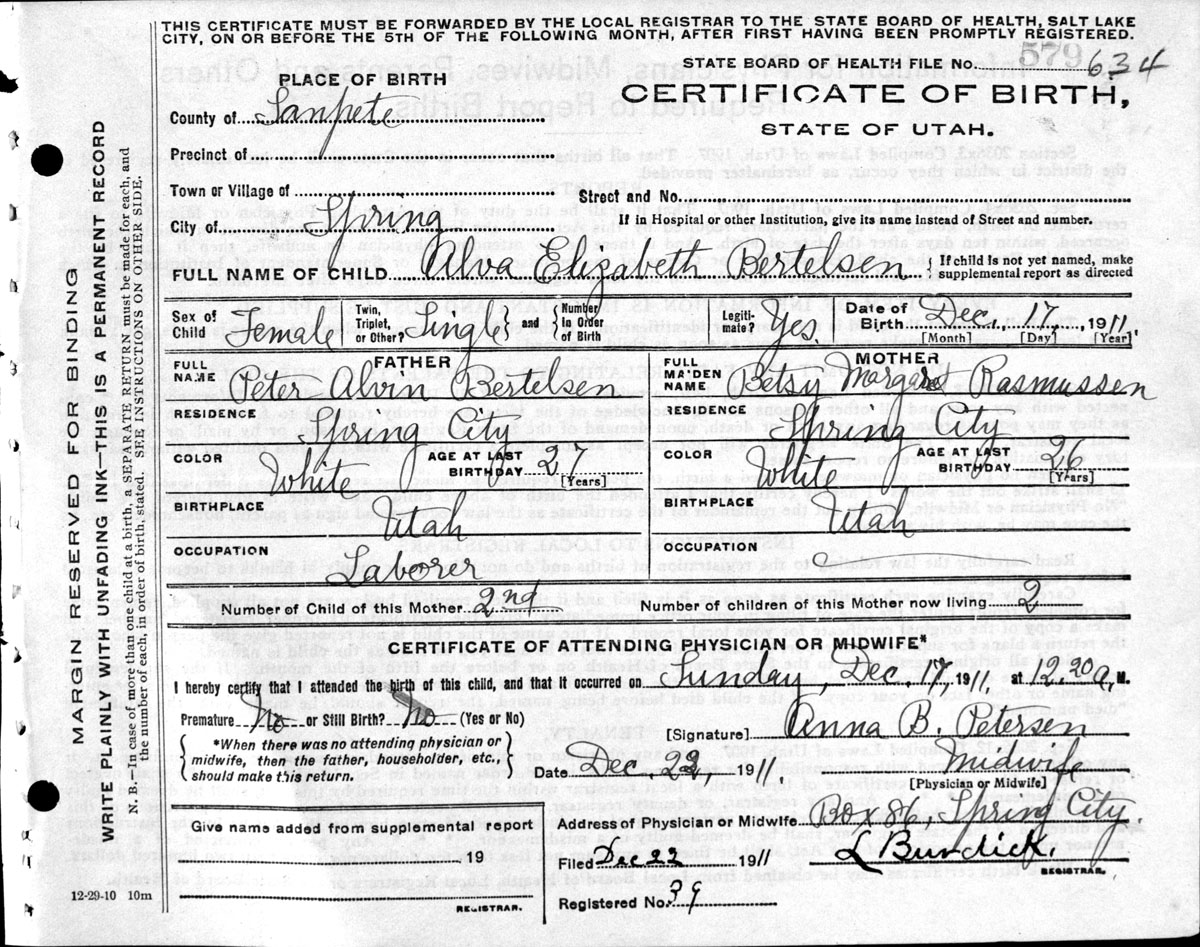 THIS CERTIFICATE MUST BE FORWARDED BY THE LOCAL REGISTRAR TO THE STATE BOARD OF HEALTH, SALT LAKE
CITY, ON OR BEFORE THE 5TH OF THE FOLLOWING MONTH, AFTER FIRST HAVING BEEN PROMPTLY REGISTERED.
579
STATE BOARD OF HEALTH FILE No. 634
PLACE OF BIRTH
CERTIFICATE OF BIRTH,
STATE OF UTAH.
County of Sanpete
Precinct of
Town or Village of
Street and No.
City of Spring
If in Hospital or other Institution, give its name instead of Street and number.
FULL NAME OF CHILD Alva Elizabeth Bertelsen { If child is not yet named, make supplemental report as directed
Sex of Child Female Twin, Triplet, or Other? Single { and } Number in Order of Birth Legitimate? Yes. Date of Birth Dec. 17, 1911
[Month] [Day] [Year]
FATHER
FULL NAME Peter Alvin Bertelsen
RESIDENCE Spring City
COLOR White AGE AT LAST BIRTHDAY 27 [Years]
BIRTHPLACE Utah
OCCUPATION Laborer
MOTHER
FULL MAIDEN NAME Betsy Margaret Rasmussen
RESIDENCE Spring City
COLOR White AGE AT LAST BIRTHDAY 26 [Years]
BIRTHPLACE Utah
OCCUPATION
Number of Child of this Mother 2nd Number of children of this Mother now living 2
CERTIFICATE OF ATTENDING PHYSICIAN OR MIDWIFE*
I hereby certify that I attended the birth of this child, and that it occurred on Sunday, Dec. 17, 1911, at 12.20 a. M.
Premature No or Still Birth? No (Yes or No)
[Signature] Anna B. Petersen
{ *When there was no attending physician or midwife, then the father, householder, etc., should make this return. }
Midwife
[Physician or Midwife]
Date Dec. 22, 1911
Address of Physician or Midwife Box 86, Spring City.
Give name added from supplemental report
19
REGISTRAR.
Filed Dec 22 1911 L Burdick.
REGISTRAR.
Registered No. 39
12-29-10 10m
MARGIN RESERVED FOR BINDING
WRITE PLAINLY WITH UNFADING INK—THIS IS A PERMANENT RECORD
N. B.—In case of more than one child at a birth, a SEPARATE RETURN must be made for each, and
the number of each, in order of birth, stated. SEE INSTRUCTIONS ON OTHER SIDE.